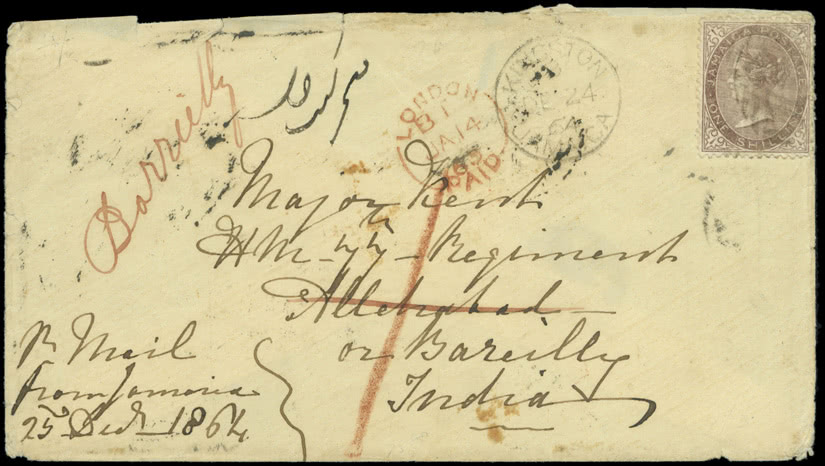 Barrielly
LONDON
B1
JA 14
65
PAID
KINGSTON
DE 24
64
JAMAICA
JAMAICA POSTAGE
ONE SHILLING
Major Kent
HM-77-Regiment
Allehabad
or Bareilly
India
Pr Mail
from Jamaica
25 Decr 1864